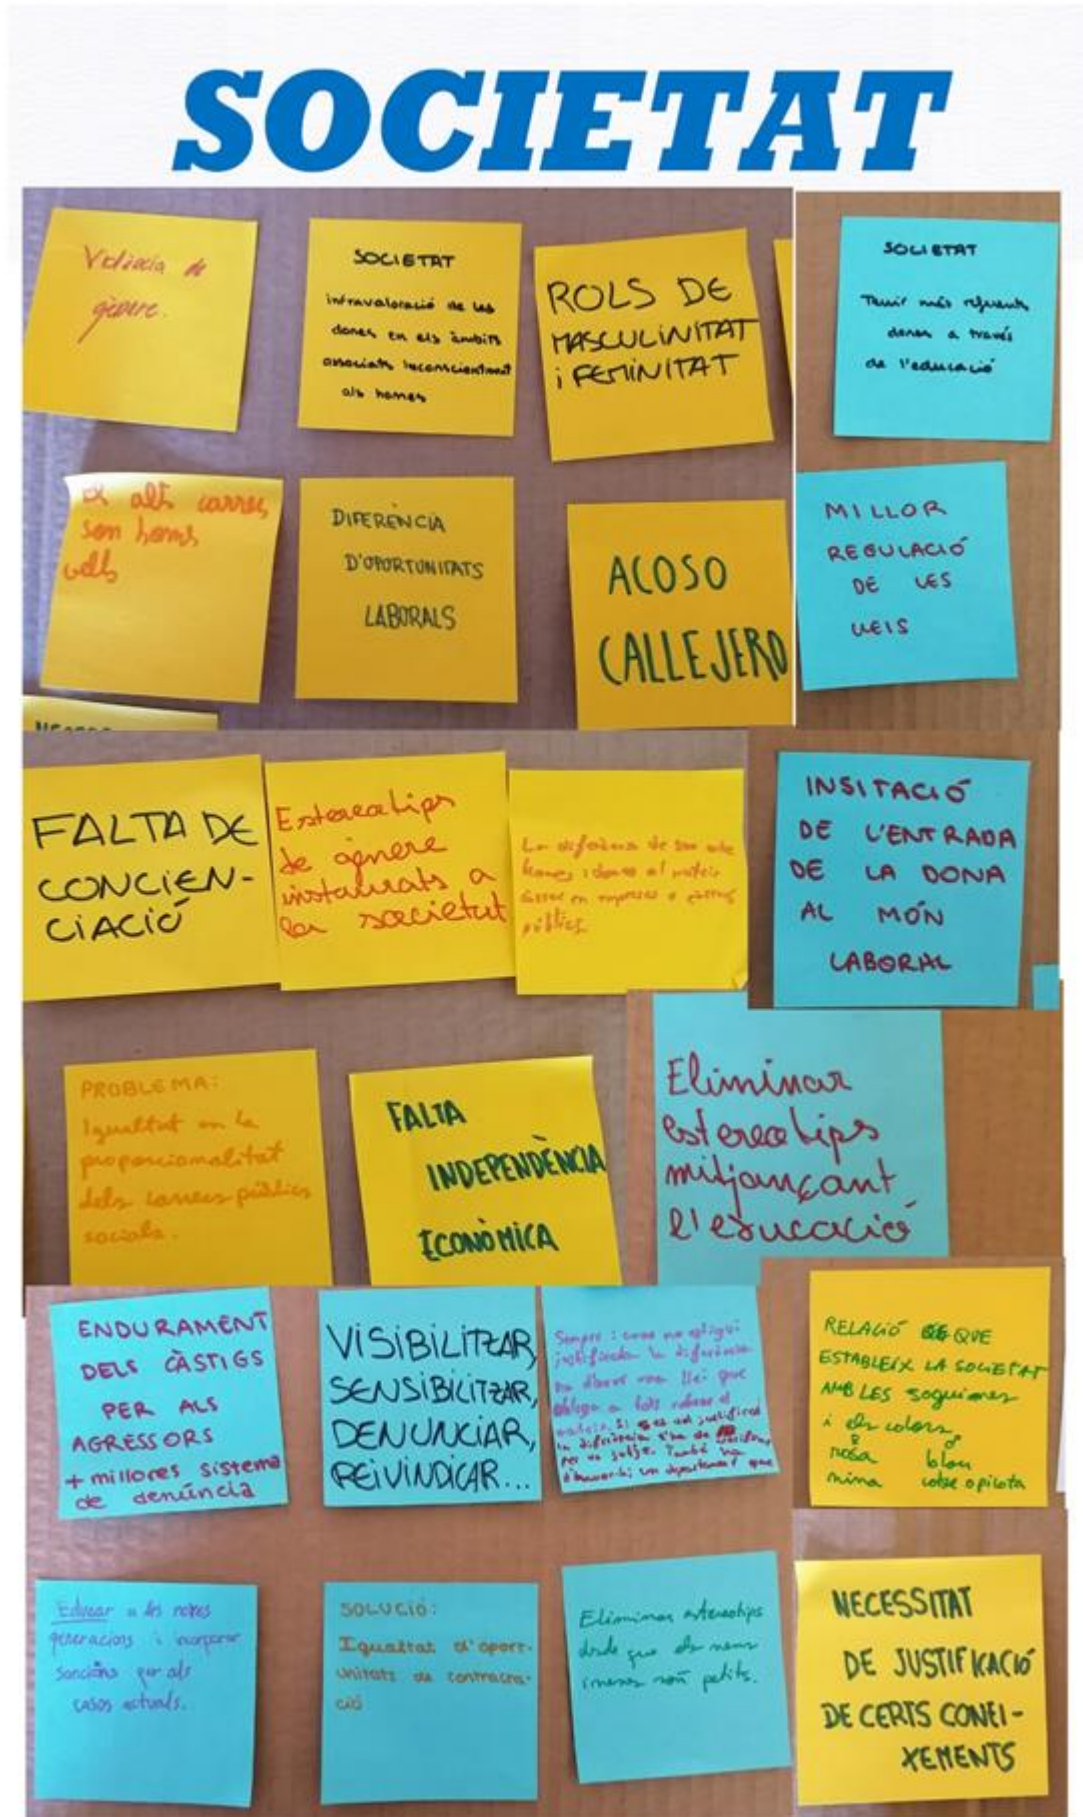 SOCIETAT
Violència de
gènere.
SOCIETAT
infravaloració de les
dones en els àmbits
associats inconscientment
als homes
ROLS DE
MASCULINITAT
i FEMINITAT
SOCIETAT
Tenir més referents
dones a través
de l'educació
alts carrecs
son homs
vells
DIFERÈNCIA
D'OPORTUNITATS
LABORALS
ACOSO
CALLEJERO
MILLOR
REGULACIÓ
DE LES
LLEIS
FALTA DE
CONCIEN-
CIACIÓ
Estereotips
de gènere
instaurats a
la societat
La diferència de sou entre
homes i dones al mateix
càrrec en empreses o càrrecs
públics.
INSITACIÓ
DE L'ENTRADA
DE LA DONA
AL MÓN
LABORAL
PROBLEMA:
Igualtat en la
proporcionalitat
dels carrecs públics
socials.
FALTA
INDEPENDÈNCIA
ECONÒMICA
Eliminar
estereotips
mitjançant
l'educació
ENDURAMENT
DELS CÀSTIGS
PER ALS
AGRESSORS
+ millores sistema
de denúncia
VISIBILITZAR,
SENSIBILITZAR,
DENUNCIAR,
REIVINDICAR...
Sempre i
justificada la diferència
una llei que
obliga a tots
mateix. Si
la diferència s'ha de
per un jutge. També
un departament que
RELACIÓ QUE
ESTABLEIX LA SOCIETAT
AMB LES joguines
i els colors
rosa blau
nina cotxe o pilota
Educar a les noves
generacions i incorporar
sancions per als
casos actuals.
SOLUCIÓ:
Igualtat d'oport-
unitats de contracta-
ció
Eliminar estereotips
desde que els nens
i nenes són petits.
NECESSITAT
DE JUSTIFICACIÓ
DE CERTS CONEI-
XEMENTS